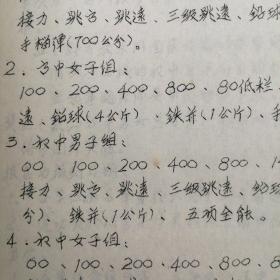 接力、跳高、跳遠、三级跳遠、鉛球
手榴弹(700公分)。
2．高中女子组：
100、200、400、800、80低栏、
遠、鉛球(4公斤)、鉄并(1公斤)、手
3．初中男子组：
00、100、200、400、800、1
接力、跳高、跳遠、三级跳遠、鉛球
分)、鉄并(1公斤)、五项全能。
4．初中女子组：
00、100、200、400、800、8